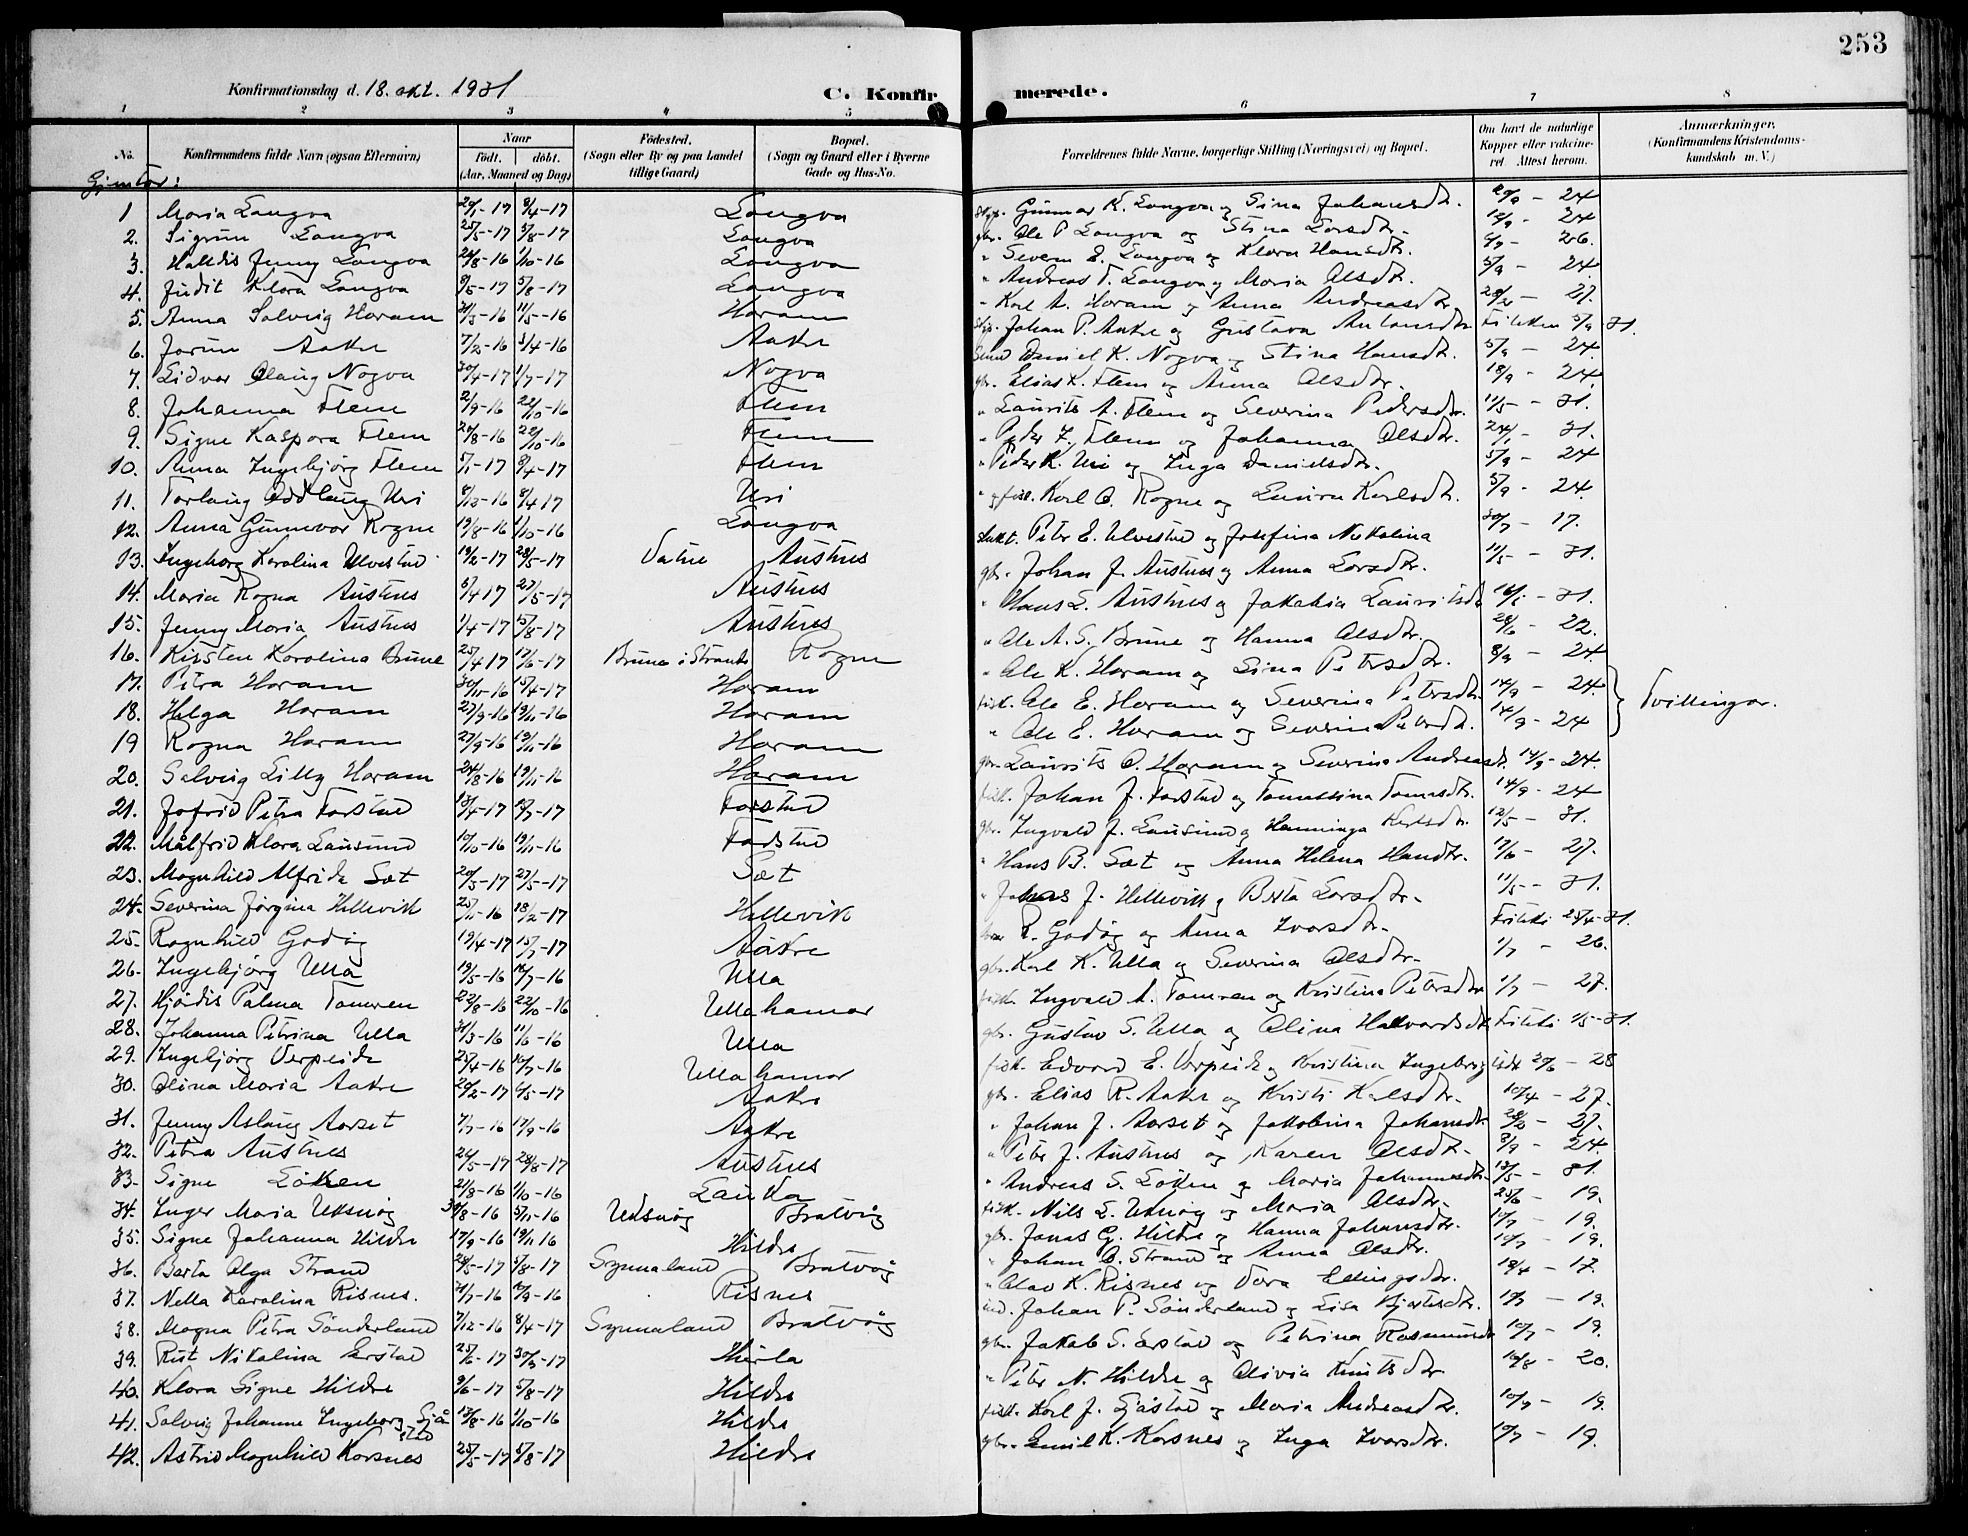 253
Konfirmationsdag d. 18. okt. 1931
C. Konfir
merede.
1 2 3 4 5 6 7 8
No. Konfirmandens fulde Navn (ogsaa Efternavn) Naar födt. döbt. (Aar, Maaned og Dag) Födested. (Sogn eller By og paa Landet tillige Gaard) Bopæl. (Sogn og Gaard eller i Byerne Gade og Hus-No. Forældrenes fulde Navne, borgerlige Stilling (Næringsvei) og Bopæl. Om havt de naturlige Kopper eller vaccineret. Attest herom. Anmærkninger. (Konfirmandens Kristendomskundskab m. V.)
Gjenter:
1 Maria Longva 8/4-17 Longva Gunnar K. Longva og Sina Johansdtr. - 24
2. Sigrun Longva 25/5-17 5/8-17 Longva gbr. Ole P. Longva og Stina Larsdtr. - 24
3. Halldis Jenny Longva 1/10-16 Longva " Severin E. Longva og Klara Hansdtr. - 26.
4. Judit Klara Longva 5/8-17 Longva " Andreas T. Longva og Maria Olsdtr. 5/9 - 24
5. Anna Solveig Haram 11/5-16 Haram " Karl A. Haram og Anna Andreasdtr. - 27.
6. Jorun Aakre Aakre Johan P. Aakre og Gustava Antonsdtr. 5/9 31.
7. Lidvar Olaug Nogva 30/4-17 1/7-17 Nogva Daniel K. Nogva og Stina Hansdtr. 5/9 - 24.
8. Johanna Flem 2/9-16 22/10-16 Flem gbr. Elias K. Flem og Anna Olsdtr. 18/9 - 24.
9. Signe Kaspara Flem 20/8-16 22/10-16 Flem " Laurits A. Flem og Severina Pedersdtr. 11/5 - 31.
10. Anna Ingebjörg Flem 5/1-17 9/4-17 Flem " Peder Z. Flem og Johanna Olsdtr. 24/1 - 31.
11. Torlaug Oddlaug Uri 8/12-16 8/4 17 Uri " Peder K. Uri og Inga Danielsdtr. 5/9 - 24
12. Anna Gunnvor Rogne 19/8-16 1/10-16 Longva Karl O. Rogne og Karlsdtr. 5/9 - 24.
13. Ingeborg Karolina Ulvestad 19/2-17 28/5-17 Vatne Austnes Peter E. Ulvestad og Josefina Nikolina 30/7 - 17.
14. Maria Ragna Austnes 27/5-17 Austnes gbr. Johan J. Austnes og Anna Larsdtr. 11/5 - 31.
15. Jenny Maria Austnes 1/4-17 15/8-17 Austnes " Hans L. Austnes og Jakobia Lauritsdtr - 31.
16. Kirsten Karolina Brune 25/4 17 17/6-17 Brune i Stranda Rogne " Ole A. S. Brune og Hanna Olsdtr. 28/6 - 22.
17. Petra Haram 30/11-16 15/4-17 Haram " Ole K. Haram og Lina Petersdtr. 8/9 - 24.
18. Helga Haram 27/9-16 19/11-16 Haram fisk. Ole E. Haram og Severina Petersdtr. 14/9 - 24. } Tvillingar.
19 Ragna Haram 27/9-16 19/11-16 Haram " Ole E. Haram og Severina Petersdtr. 14/9 - 24
20. Solveig Lilly Haram 24/8-16 19/11-16 Haram gbr. Laurits O. Haram og Severine Andreasdtr. 14/9 - 24.
21. Jofrid Petra Farstad 13/4-17 Farstad fisk. Johan J. Farstad og Tomassina Tomasdtr. 14/9 - 24
22. Målfrid Klara Lausund 10/10-16 19/11-16 Farstad gbr. Ingvald J. Lausund og Hanninga Karlsdtr. 12/5 - 31.
23. Magnhild Alfrida Sæt 20/3-17 27/5-17 Sæt " Hans B. Sæt og Anna Helena Hansdtr. 17/6 - 27.
24. Severina Jørgina Hellevik 25/11-16 18/2-17 Hellevik " Johans J. Hellevik og Berta Larsdtr. 11/5 - 31.
25. Ragnhild Godøy 19/4-17 15/7-17 Aakre R. Godøy og Anna Ivarsdtr. 25/4-31.
26. Ingebjørg Ulla 19/5-16 16/7-16 Ulla gbr. Karl K. Ulla og Severina Olsdtr. 1/7 - 26.
27. Hjördis Palma Tomren 22/8-16 22/10-16 Ullahamar fisk. Ingvald A. Tomren og Kristina Petersdtr 1/7 - 27.
28. Johanna Petrina Ulla 31/3-16 11/6-16 Ulla gbr. Gustav S. Ulla og Olina Hallvardsdtr 1/5-31.
29. Ingebjörg Verpeide 25/4-16 16/7-16 Ullahamar fisk. Edvard E. Verpeide og Kristina Ingebrigtsdtr 29/6 - 28
30. Olina Maria Aakre 20/2-17 6/5-17 Aakre gbr. Elias R. Aakre og Kristi Karlsdtr. 10/4 - 27.
31. Jenny Aslaug Aarset 7/7-16 17/9-16 Aakre " Johan J. Aarset og Jakobina Johansdtr 28/2 - 27.
32. Petra Austnes 26/5-17 26/8-17 Austnes " Peter J. Austnes og Karen Olsdtr. 8/9 - 24.
33. Signe Löken 21/8-16 1/10-16 Lauka " Andreas S. Löken og Maria Johannesdtr. 13/5 - 31.
34. Inger Maria Uksnøy 30/8-16 5/11-16 Uksnøy Bratvåg fisk. Nils L. Uksnøy og Maria Olsdtr. 25/6 - 19.
35. Signe Johanna Hildre 17/9-16 19/11 16 Hildre gbr. Jonas G. Hildre og Hanna Johansdtr. 10/7 - 19.
36. Berta Olga Strand 24/5-17 5/8-17 Synnaland Bratvåg " Johan O. Strand og Anna Olsdtr. 10/7 - 19.
37. Nella Karolina Risnes. 31/7-16 10/9-16 Risnes " Olav K. Risnes og Tora Ellingsdtr. 18/4 - 17.
38. Magna Petra Sönderland 7/12-16 8/4-17 Synnaland Bratvåg Johan P. Sönderland og Lisa 10/7 - 19.
39. Nikolina Erstad 25/6-17 30/9-17 Hurla gbr. Jakob S. Erstad og Petrina Rasmusdtr 10/7 - 19.
40. Klara Signe Hildre 9/6-17 5/8-17 Hildre " Peter N. Hildre og Olivia Knutsdtr 10/8 - 20.
41. Solveig Johanne Ingeborg Sjåstad 13/8-16 1/10-16 Hildre fisk. Karl J. Sjåstad og Maria Andreasdtr. 10/7 - 19.
42. Astrid Magnhild Korsnes 25/5-17 5/8-17 Hildre gbr. Emil K. Korsnes og Inga Ivarsdtr. 10/7 - 19.